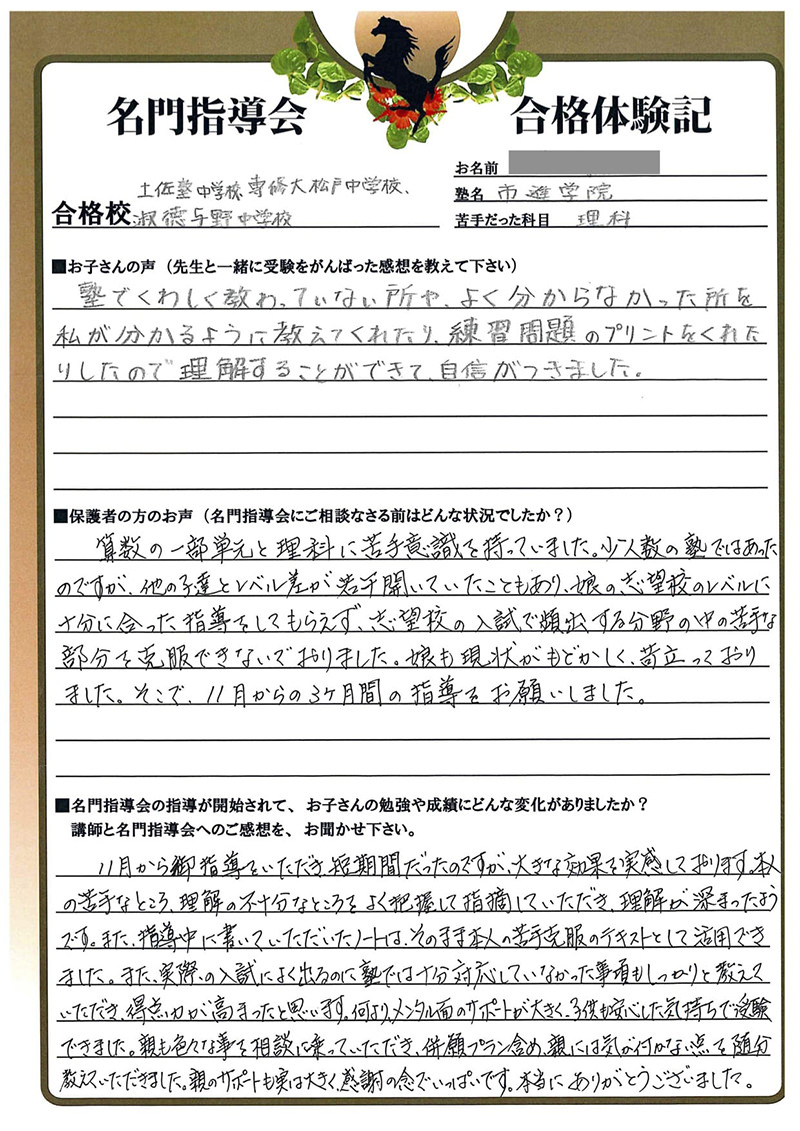 名門指導会 合格体験記
お名前
合格校 土佐塾中学校、専修大松戸中学校、
淑徳与野中学校
塾名 市進学院
苦手だった科目 理科
■お子さんの声（先生と一緒に受験をがんばった感想を教えて下さい）
塾でくわしく教わっていない所や、よく分からなかった所を
私が分かるように教えてくれたり、練習問題のプリントをくれた
りしたので理解することができて、自信がつきました。
■保護者の方のお声（名門指導会にご相談なさる前はどんな状況でしたか？）
算数の一部単元と理科に苦手意識を持っていました。少人数の塾ではあった
のですが、他の子達とレベル差が若干開いていたこともあり、娘の志望校のレベルに
十分に合った指導をしてもらえず、志望校の入試で頻出する分野の中の苦手な
部分を克服できないでおりました。娘も現状がもどかしく、苛立っており
ました。そこで、11月からの3ヶ月間の指導をお願いしました。
■名門指導会の指導が開始されて、お子さんの勉強や成績にどんな変化がありましたか？
講師と名門指導会へのご感想を、お聞かせ下さい。
11月から御指導をいただき、短期間だったのですが、大きな効果を実感しております。本人
の苦手なところ、理解の不十分なところをよく把握して指摘していただき、理解が深まったよう
です。また、指導中に書いていただいたノートは、そのまま本人の苦手克服のテキストとして活用でき
ました。また、実際の入試によく出るのに塾では十分対応していなかった事項もしっかりと教えて
いただき、得点力が高まったと思います。何より、メンタル面のサポートが大きく、子供も安心した気持ちで受験
できました。親も色々な事を相談に乗っていただき、併願プラン含め、親には気が付かない点を随分
教えていただきました。親のサポートも実は大きく、感謝の念でいっぱいです。本当にありがとうございました。